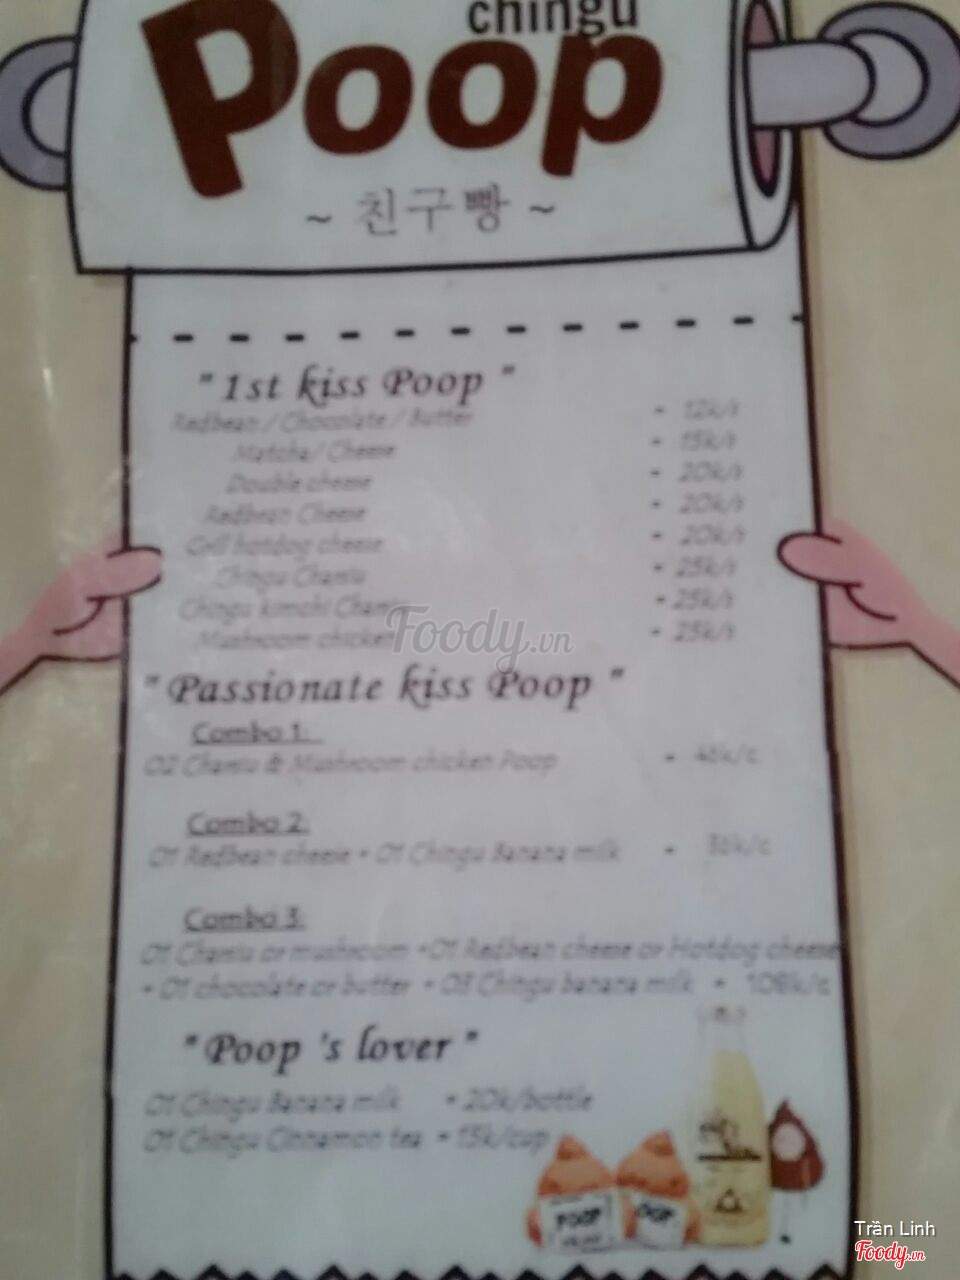 chingu
Poop
~ 친구빵 ~
" 1st kiss Poop "
Redbean / Chocolate / Butter - 12k/
Matcha / Cheese - 15k/
Double cheese - 20k/
Redbean Cheese - 20k/
Grill hotdog cheese - 20k/
Chingu Chasiu - 25k/
Chingu kimchi Chasiu - 25k/
Mushroom chicken - 25k/
Foody.vn
" Passionate kiss Poop "
Combo 1:
02 Chasiu & Mushroom chicken Poop - 46k/c
Combo 2:
01 Redbean cheese + 01 Chingu Banana milk - 36k/c
Combo 3:
01 Chasiu or mushroom +01 Redbean cheese or Hotdog cheese
+ 01 chocolate or butter + 03 Chingu banana milk = 108k/c
" Poop 's lover "
01 Chingu Banana milk = 20k/bottle
01 Chingu Cinnamon tea = 15k/cup
POOP
Trần Linh
Foody.vn